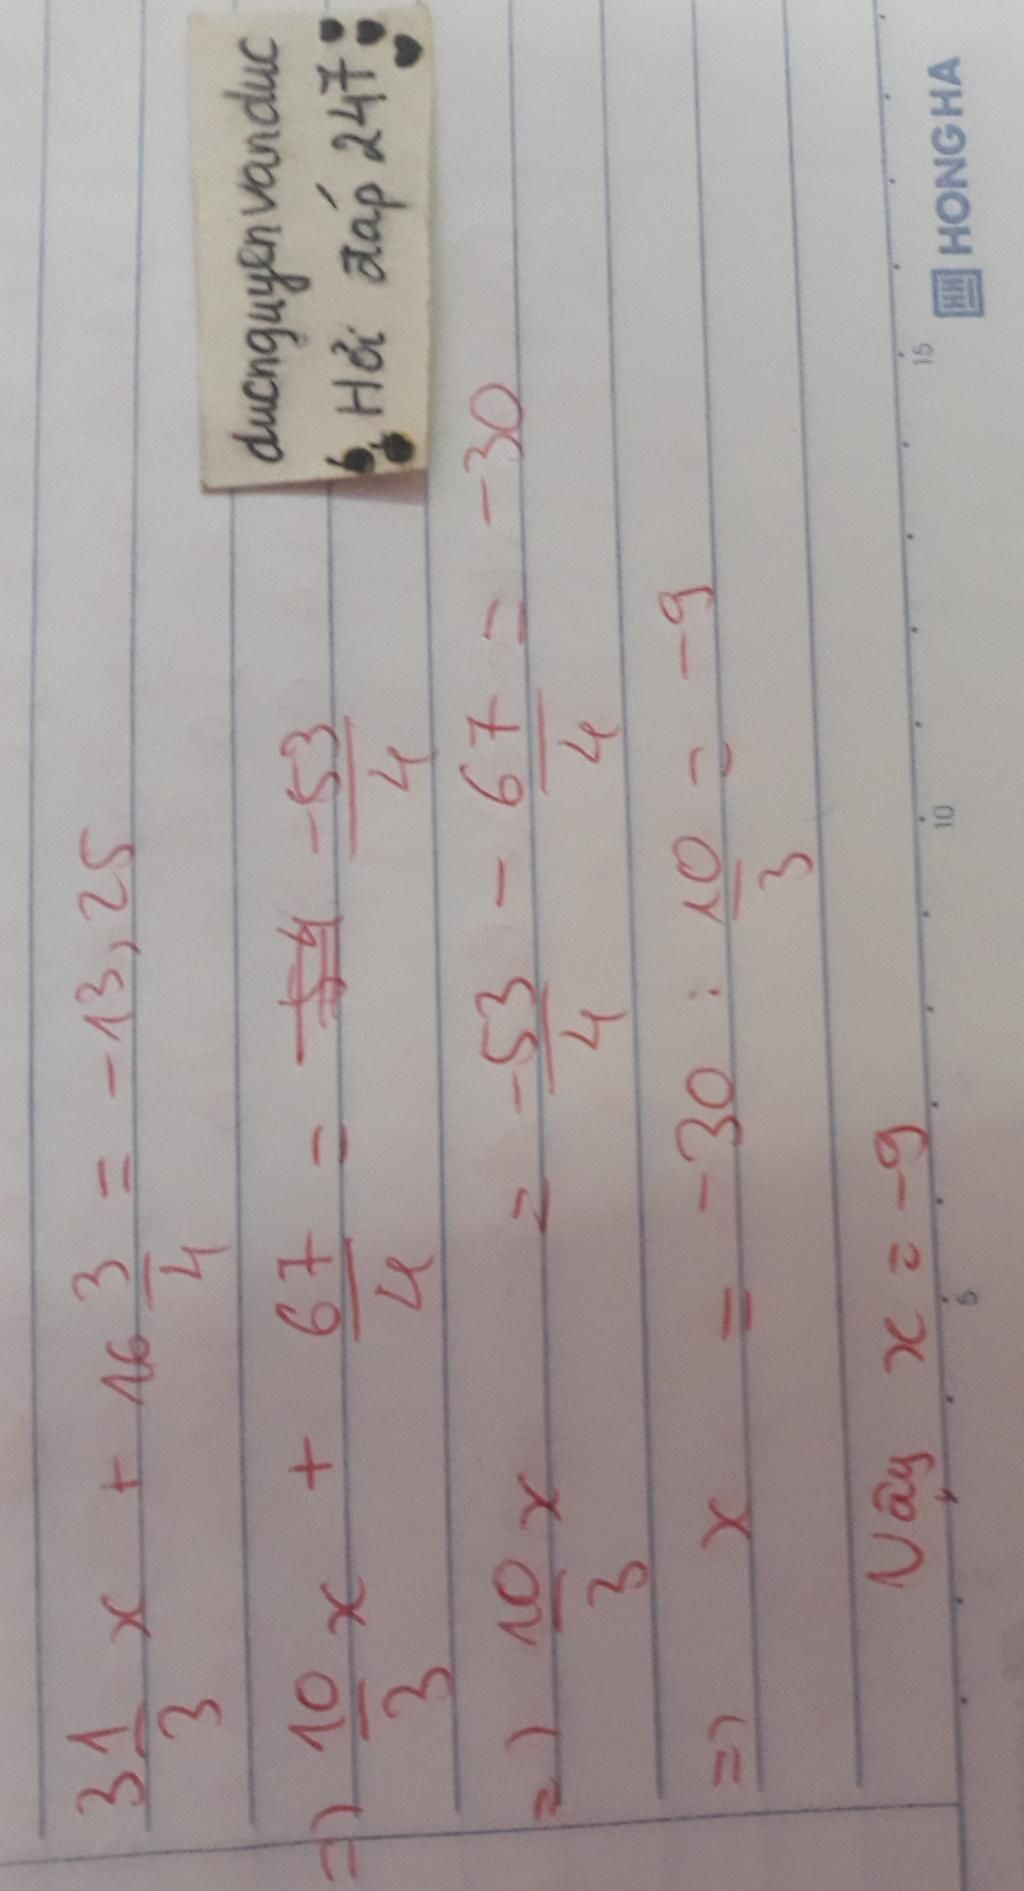 3 1/3 x + 16 3/4 = -13,25
=) 10/3 x + 67/4 = -53/4
=) 10/3 x = -53/4 - 67/4 = -30
=) x = -30 : 10/3 = -9
Vậy x = -9
ducnguyenvanduc
Hỏi đáp 247
5 10 15
HONG HA